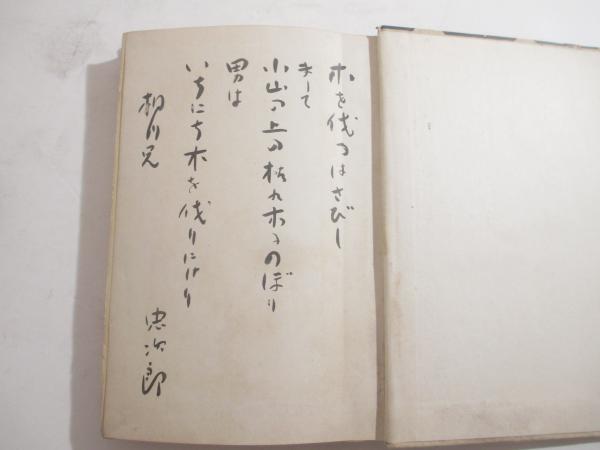 木を伐るはさびし
まして
小山の上の枯れ木にのぼり
男は
いちにち木を伐りにけり
相川兄
忠次郎